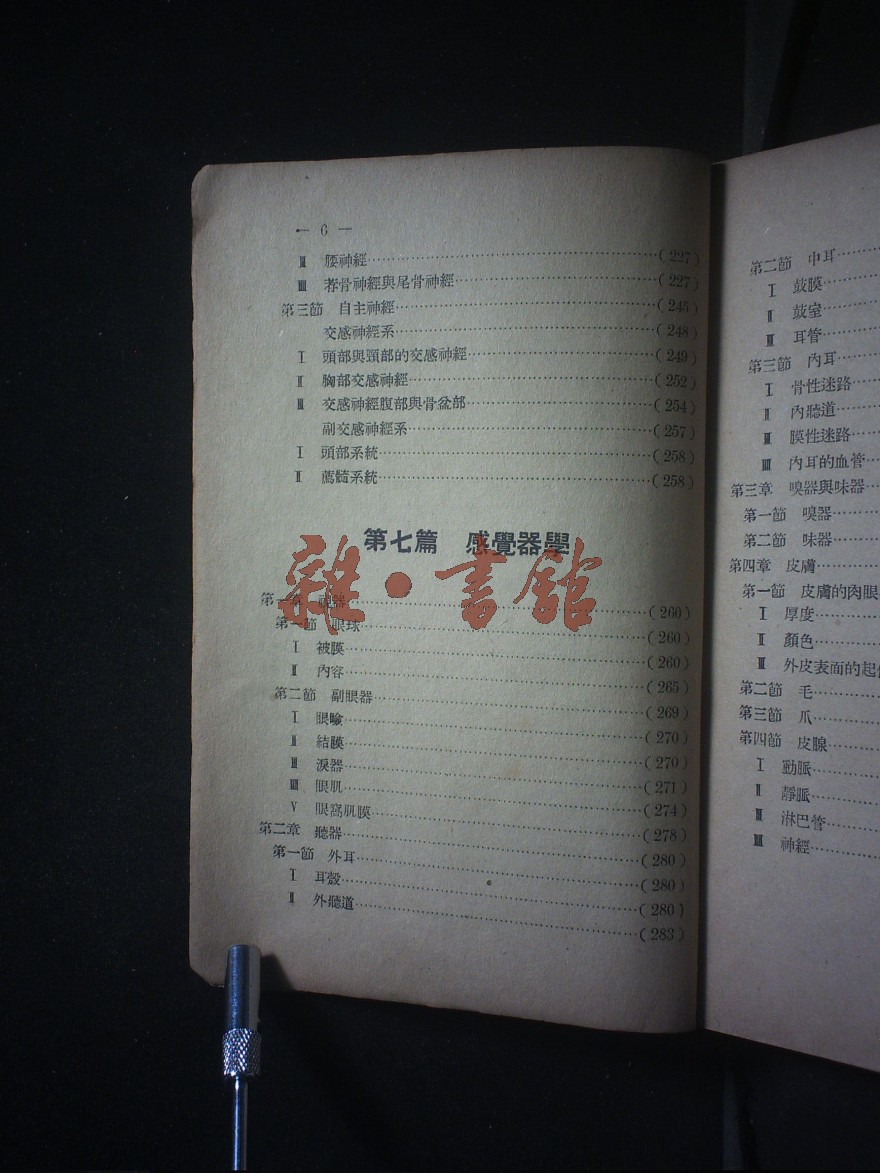 — 6 —
Ⅲ 腰神經……(227)
IIII 荐骨神經與尾骨神經……(227)
第三節 自主神經……(245)
交感神經系……(248)
Ⅰ 頭部與頸部的交感神經……(249)
Ⅱ 胸部交感神經……(252)
Ⅲ 交感神經腹部與骨盆部……(254)
副交感神經系……(257)
Ⅰ 頭部系統……(258)
Ⅱ 薦髓系統……(258)
第七篇 感覺器學
雜·書館
第一章 視器……(260)
第一節 眼球……(260)
Ⅰ 被膜……(260)
Ⅱ 內容……(265)
第二節 副眼器……(269)
Ⅰ 眼瞼……(270)
Ⅱ 結膜……(270)
Ⅲ 淚器……(271)
IIII 眼肌……(274)
Ⅴ 眼窩肌膜……(278)
第二章 聽器……(280)
第一節 外耳……(280)
Ⅰ 耳殼……(280)
Ⅱ 外聽道……(283)
第二節 中耳……
Ⅰ 鼓膜……
Ⅱ 鼓室……
Ⅲ 耳管……
第三節 內耳……
Ⅰ 骨性迷路……
Ⅱ 內聽道……
Ⅲ 膜性迷路……
IIII 內耳的血管……
第三章 嗅器與味器……
第一節 嗅器……
第二節 味器……
第四章 皮膚……
第一節 皮膚的肉眼
Ⅰ 厚度……
Ⅱ 顏色……
Ⅲ 外皮表面的起
第二節 毛……
第三節 爪……
第四節 皮腺……
Ⅰ 動脈……
Ⅱ 靜脈……
Ⅲ 淋巴管……
IIII 神經……